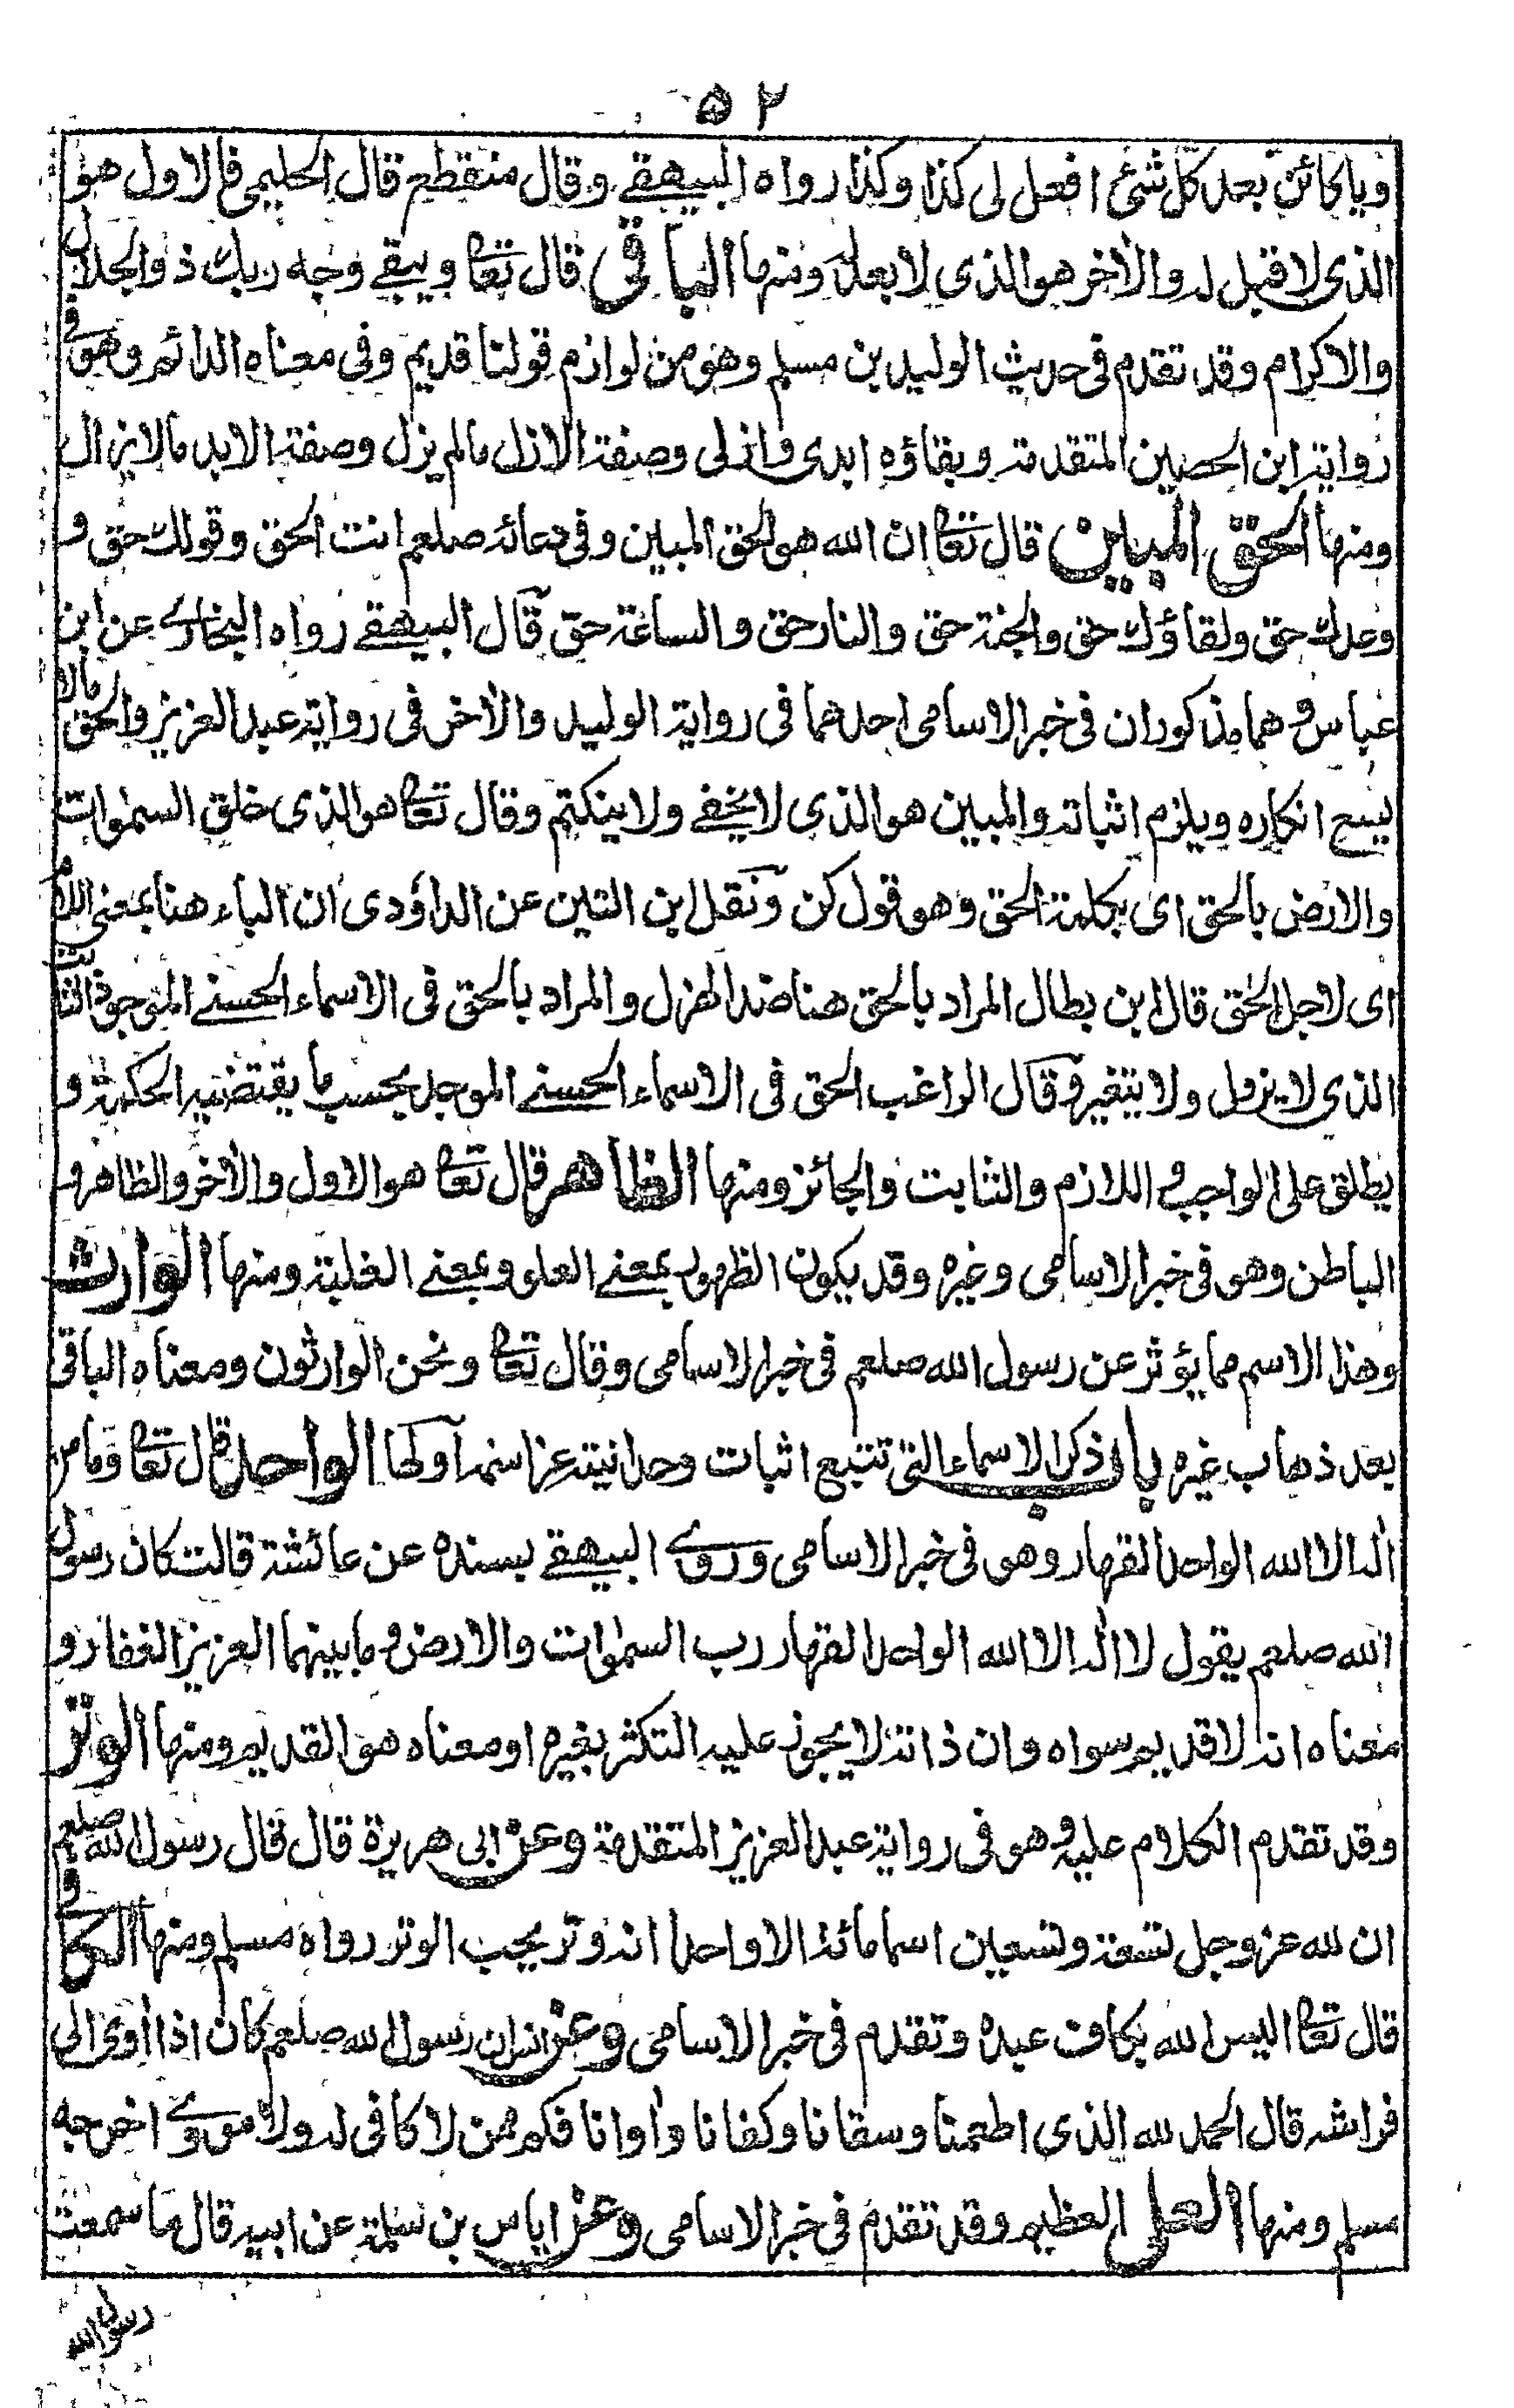 ۵۲
ويا كائن بعد كل شئ افعل لى كذا وكذا رواه البيهقے وقال منقطع قال الحليمى فالاول هو
الذى لا قبل له والاٰخر هو الذى لا بعد له ومنها الباقى قال تعا ويبقے وجه ربك ذو الجلال
والاكرام وقد تقدم فى حديث الوليد بن مسلم وهو من لوازم قولنا قديم وفى معناه الدائم وهو فى
رواية ابن الحصين المتقدمة وبقاؤه ابدى وازلى وصفة الازل مالم يزل وصفة الابد مالا يزال
ومنها الحق المبين قال تعا ان الله هو الحق المبين وفى دعائه صلعم انت الحق وقولك حق و
وعدك حق ولقاؤك حق والجنة حق والنار حق والساعة حق قال البيهقے رواه البخارے عن ابن
عباس وهما مذكوران فى خبر الاسامى احدهما فى رواية الوليد والاٰخر فى رواية عبد العزيز والحق مالا
يسع انكاره ويلزم اثباته والمبين هو الذى لا يخفے ولا ينكتم وقال تعا هو الذى خلق السمٰوات
والارض بالحق اى بكلمة الحق وهو قول كن ونقل ابن التين عن الداؤدى ان الباء هنا بمعنى اللام
اى لاجل الحق قال ابن بطال المراد بالحق هنا ضد الهزل والمراد بالحق فى الاسماء الحسنے الموجود الثابت
الذى لا يزول ولا يتغير وقال الراغب الحق فى الاسماء الحسنے الموجد بحسب ما يقتضيه الحكمة و
يطلق على الواجب واللازم والثابت والجائز ومنها الظاهر قال تعا هو الاول والاٰخر والظاهر و
الباطن وهو فى خبر الاسامى وغيره وقد يكون الظهور بمعنے العلو وبمعنے الغلبة ومنها الوارث
وهذا الاسم مما يؤثر عن رسول الله صلعم فى خبر الاسامى وقال تعا ونحن الوارثون ومعناه الباقى
بعد ذهاب غيره باب ذكر الاسماء التى تتبع اثبات وحدانيته عز اسمه اولها الواحد قال تعا وما من
اله الا الله الواحد القهار وهو فى خبر الاسامى وروے البيهقے بسنده عن عائشة قالت كان رسول
الله صلعم يقول لا اله الا الله الواحد القهار رب السمٰوات والارض وما بينهما العزيز الغفار و
معناه انه لا قديم سواه وان ذاته لا يجوز عليه التكثر بغيره او معناه هو القديم ومنها الوتر
وقد تقدم الكلام عليه وهو فى رواية عبد العزيز المتقدمة وعن ابى هريرة قال قال رسول الله صلعم
ان لله عز وجل تسعة وتسعين اسما مائة الا واحدا انه وتر يحب الوتر رواه مسلم ومنها الكافى
قال تعا اليس الله بكاف عبده وتقدم فى خبر الاسامى وعن انس ان رسول الله صلعم كان اذا اٰوى الى
فراشه قال الحمد لله الذى اطعمنا وسقانا وكفانا واٰوانا فكم ممن لا كافى له ولا مؤوے اخرجه
مسلم ومنها العلى العظيم وقد تقدم فى خبر الاسامى وعن اياس بن سلمة عن ابيه قال ما سمعت
رسول الله